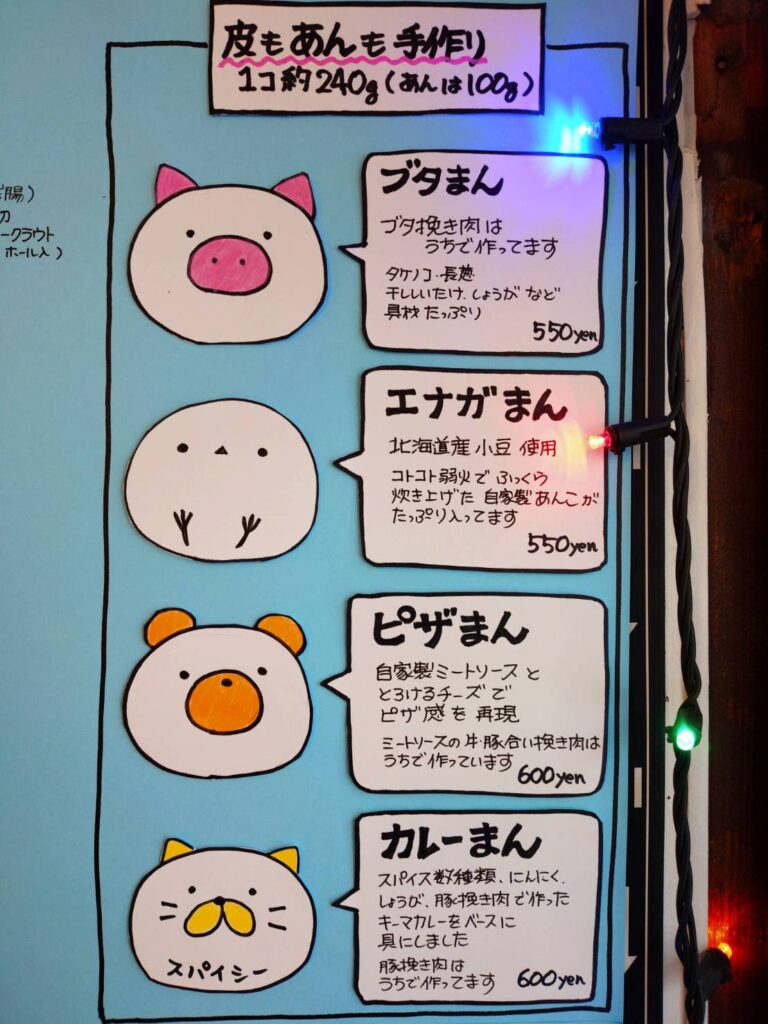 皮もあんも手作り
1コ約240g(あんは100g)
腸)
ークラウト
ホール入)
ブタまん
ブタ挽き肉は
うちで作ってます
タケノコ・長葱・
干ししいたけ、しょうがなど
具材たっぷり
550yen
エナガまん
北海道産小豆使用
コトコト弱火でふっくら
炊き上げた自家製あんこが
たっぷり入ってます
550yen
ピザまん
自家製ミートソースと
とろけるチーズで
ピザ感を再現
ミートソースの牛・豚合い挽き肉は
うちで作っています
600yen
カレーまん
スパイス数種類、にんにく、
しょうが、豚挽き肉で作った
キーマカレーをベースに
具にしました
豚挽き肉は
うちで作ってます
600yen
スパイシー